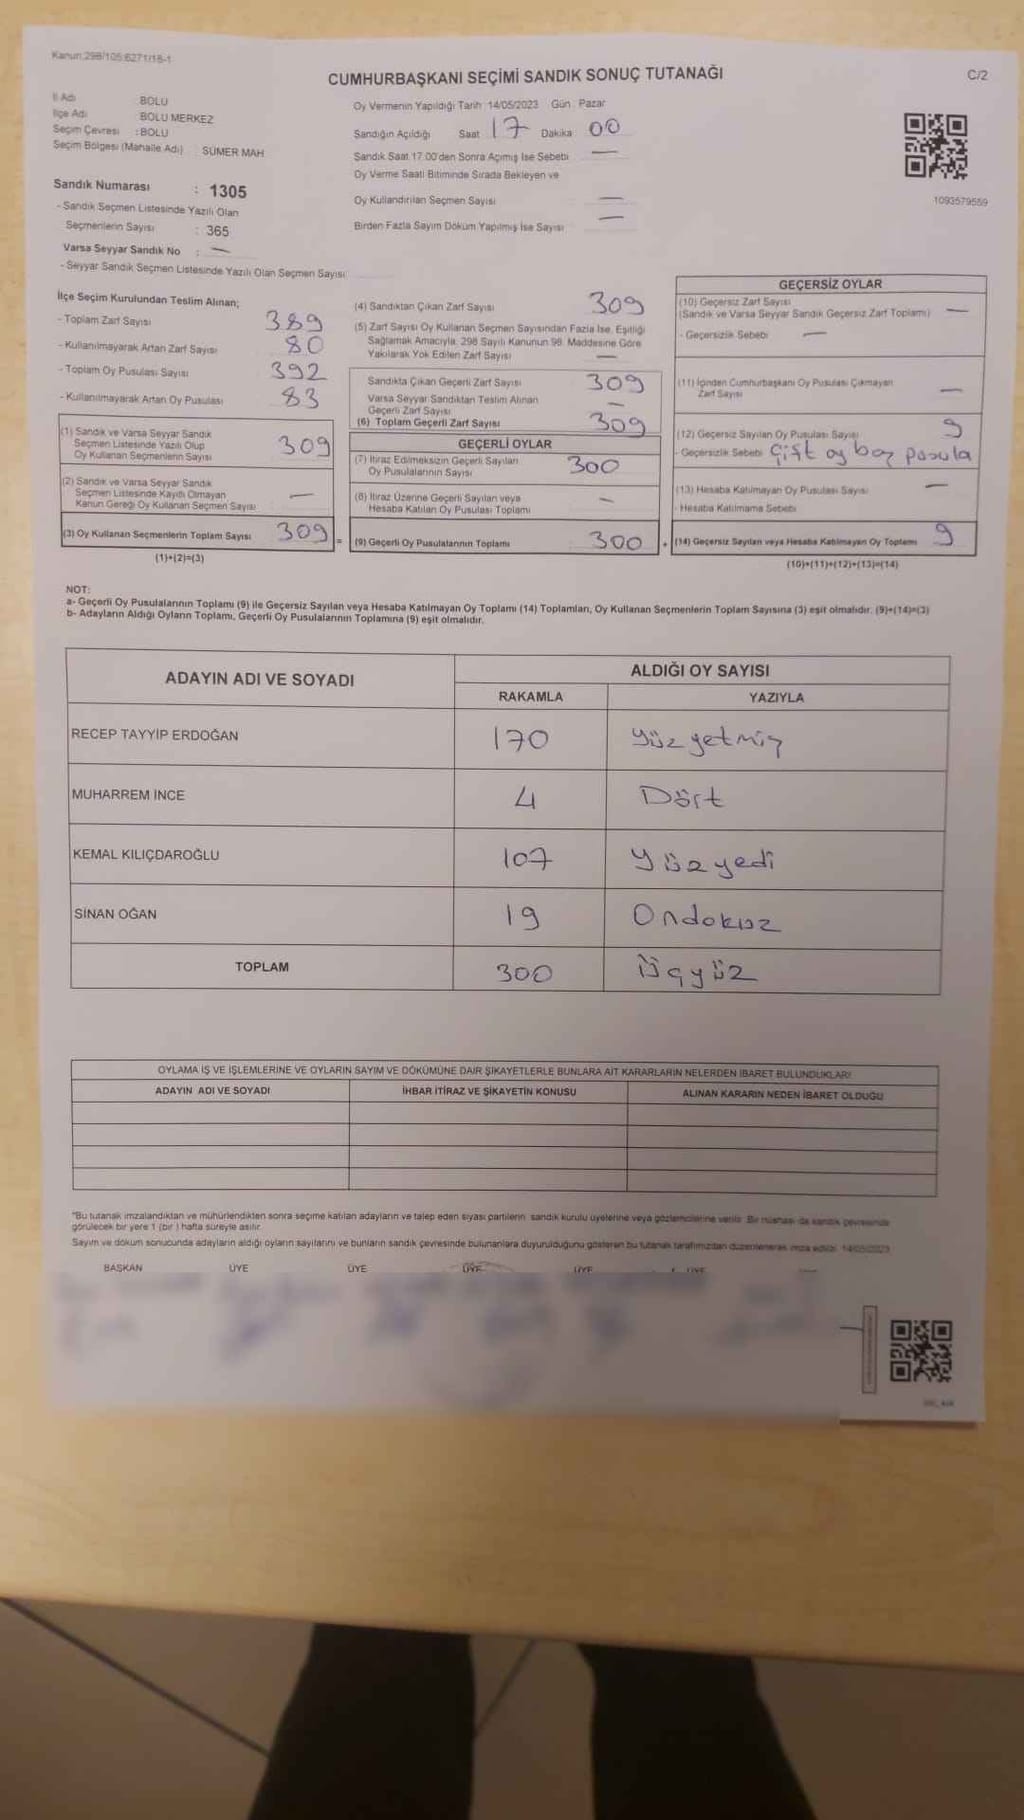 Kanun:298/105:6271/18-1
CUMHURBAŞKANI SEÇİMİ SANDIK SONUÇ TUTANAĞI
C/2
İl Adı BOLU
İlçe Adı BOLU MERKEZ
Seçim Çevresi : BOLU
Seçim Bölgesi (Mahalle Adı) SÜMER MAH
Sandık Numarası : 1305
- Sandık Seçmen Listesinde Yazılı Olan
Seçmenlerin Sayısı : 365
Varsa Seyyar Sandık No : —
- Seyyar Sandık Seçmen Listesinde Yazılı Olan Seçmen Sayısı
Oy Vermenin Yapıldığı Tarih 14/05/2023 Gün Pazar
Sandığın Açıldığı Saat 17 Dakika 00
Sandık Saat 17.00'den Sonra Açılmış İse Sebebi —
Oy Verme Saati Bitiminde Sırada Bekleyen ve
Oy Kullandırılan Seçmen Sayısı —
Birden Fazla Sayım Döküm Yapılmış İse Sayısı —
1093579559
İlçe Seçim Kurulundan Teslim Alınan;
- Toplam Zarf Sayısı 389
- Kullanılmayarak Artan Zarf Sayısı 80
- Toplam Oy Pusulası Sayısı 392
- Kullanılmayarak Artan Oy Pusulası 83
(1) Sandık ve Varsa Seyyar Sandık
Seçmen Listesinde Yazılı Olup
Oy Kullanan Seçmenlerin Sayısı 309
(2) Sandık ve Varsa Seyyar Sandık
Seçmen Listesinde Kayıtlı Olmayan
Kanun Gereği Oy Kullanan Seçmen Sayısı —
(3) Oy Kullanan Seçmenlerin Toplam Sayısı 309 =
(1)+(2)=(3)
(4) Sandıktan Çıkan Zarf Sayısı 309
(5) Zarf Sayısı Oy Kullanan Seçmen Sayısından Fazla İse, Eşitliği
Sağlamak Amacıyla, 298 Sayılı Kanunun 98. Maddesine Göre
Yakılarak Yok Edilen Zarf Sayısı —
Sandıkta Çıkan Geçerli Zarf Sayısı 309
Varsa Seyyar Sandıktan Teslim Alınan
Geçerli Zarf Sayısı —
(6) Toplam Geçerli Zarf Sayısı 309
GEÇERLİ OYLAR
(7) İtiraz Edilmeksizin Geçerli Sayılan
Oy Pusulalarının Sayısı 300
(8) İtiraz Üzerine Geçerli Sayılan veya
Hesaba Katılan Oy Pusulası Toplamı —
(9) Geçerli Oy Pusulalarının Toplamı 300 +
GEÇERSİZ OYLAR
(10) Geçersiz Zarf Sayısı
(Sandık ve Varsa Seyyar Sandık Geçersiz Zarf Toplamı) —
- Geçersizlik Sebebi —
(11) İçinden Cumhurbaşkanı Oy Pusulası Çıkmayan
Zarf Sayısı —
(12) Geçersiz Sayılan Oy Pusulası Sayısı 9
- Geçersizlik Sebebi Çift oy boş pusula
(13) Hesaba Katılmayan Oy Pusulası Sayısı —
- Hesaba Katılmama Sebebi
(14) Geçersiz Sayılan veya Hesaba Katılmayan Oy Toplamı 9
(10)+(11)+(12)+(13)=(14)
NOT:
a- Geçerli Oy Pusulalarının Toplamı (9) ile Geçersiz Sayılan veya Hesaba Katılmayan Oy Toplamı (14) Toplamları, Oy Kullanan Seçmenlerin Toplam Sayısına (3) eşit olmalıdır. (9)+(14)=(3)
b- Adayların Aldığı Oyların Toplamı, Geçerli Oy Pusulalarının Toplamına (9) eşit olmalıdır.
ADAYIN ADI VE SOYADI ALDIĞI OY SAYISI
RAKAMLA YAZIYLA
RECEP TAYYİP ERDOĞAN 170 Yüz yetmiş
MUHARREM İNCE 4 Dört
KEMAL KILIÇDAROĞLU 107 Yüz yedi
SİNAN OĞAN 19 Ondokuz
TOPLAM 300 Üçyüz
OYLAMA İŞ VE İŞLEMLERİNE VE OYLARIN SAYIM VE DÖKÜMÜNE DAİR ŞİKAYETLERLE BUNLARA AİT KARARLARIN NELERDEN İBARET BULUNDUKLARI
ADAYIN ADI VE SOYADI İHBAR İTİRAZ VE ŞİKAYETİN KONUSU ALINAN KARARIN NEDEN İBARET OLDUĞU
*Bu tutanak imzalandıktan ve mühürlendikten sonra seçime katılan adayların ve talep eden siyasi partilerin sandık kurulu üyelerine veya gözlemcilerine verilir. Bir nüshası da sandık çevresinde
görülecek bir yere 1 (bir) hafta süreyle asılır.
Sayım ve döküm sonucunda adayların aldığı oyların sayılarını ve bunların sandık çevresinde bulunanlara duyurulduğunu gösteren bu tutanak tarafımızdan düzenlenerek imza edildi. 14/05/2023
BAŞKAN ÜYE ÜYE ÜYE ÜYE ÜYE